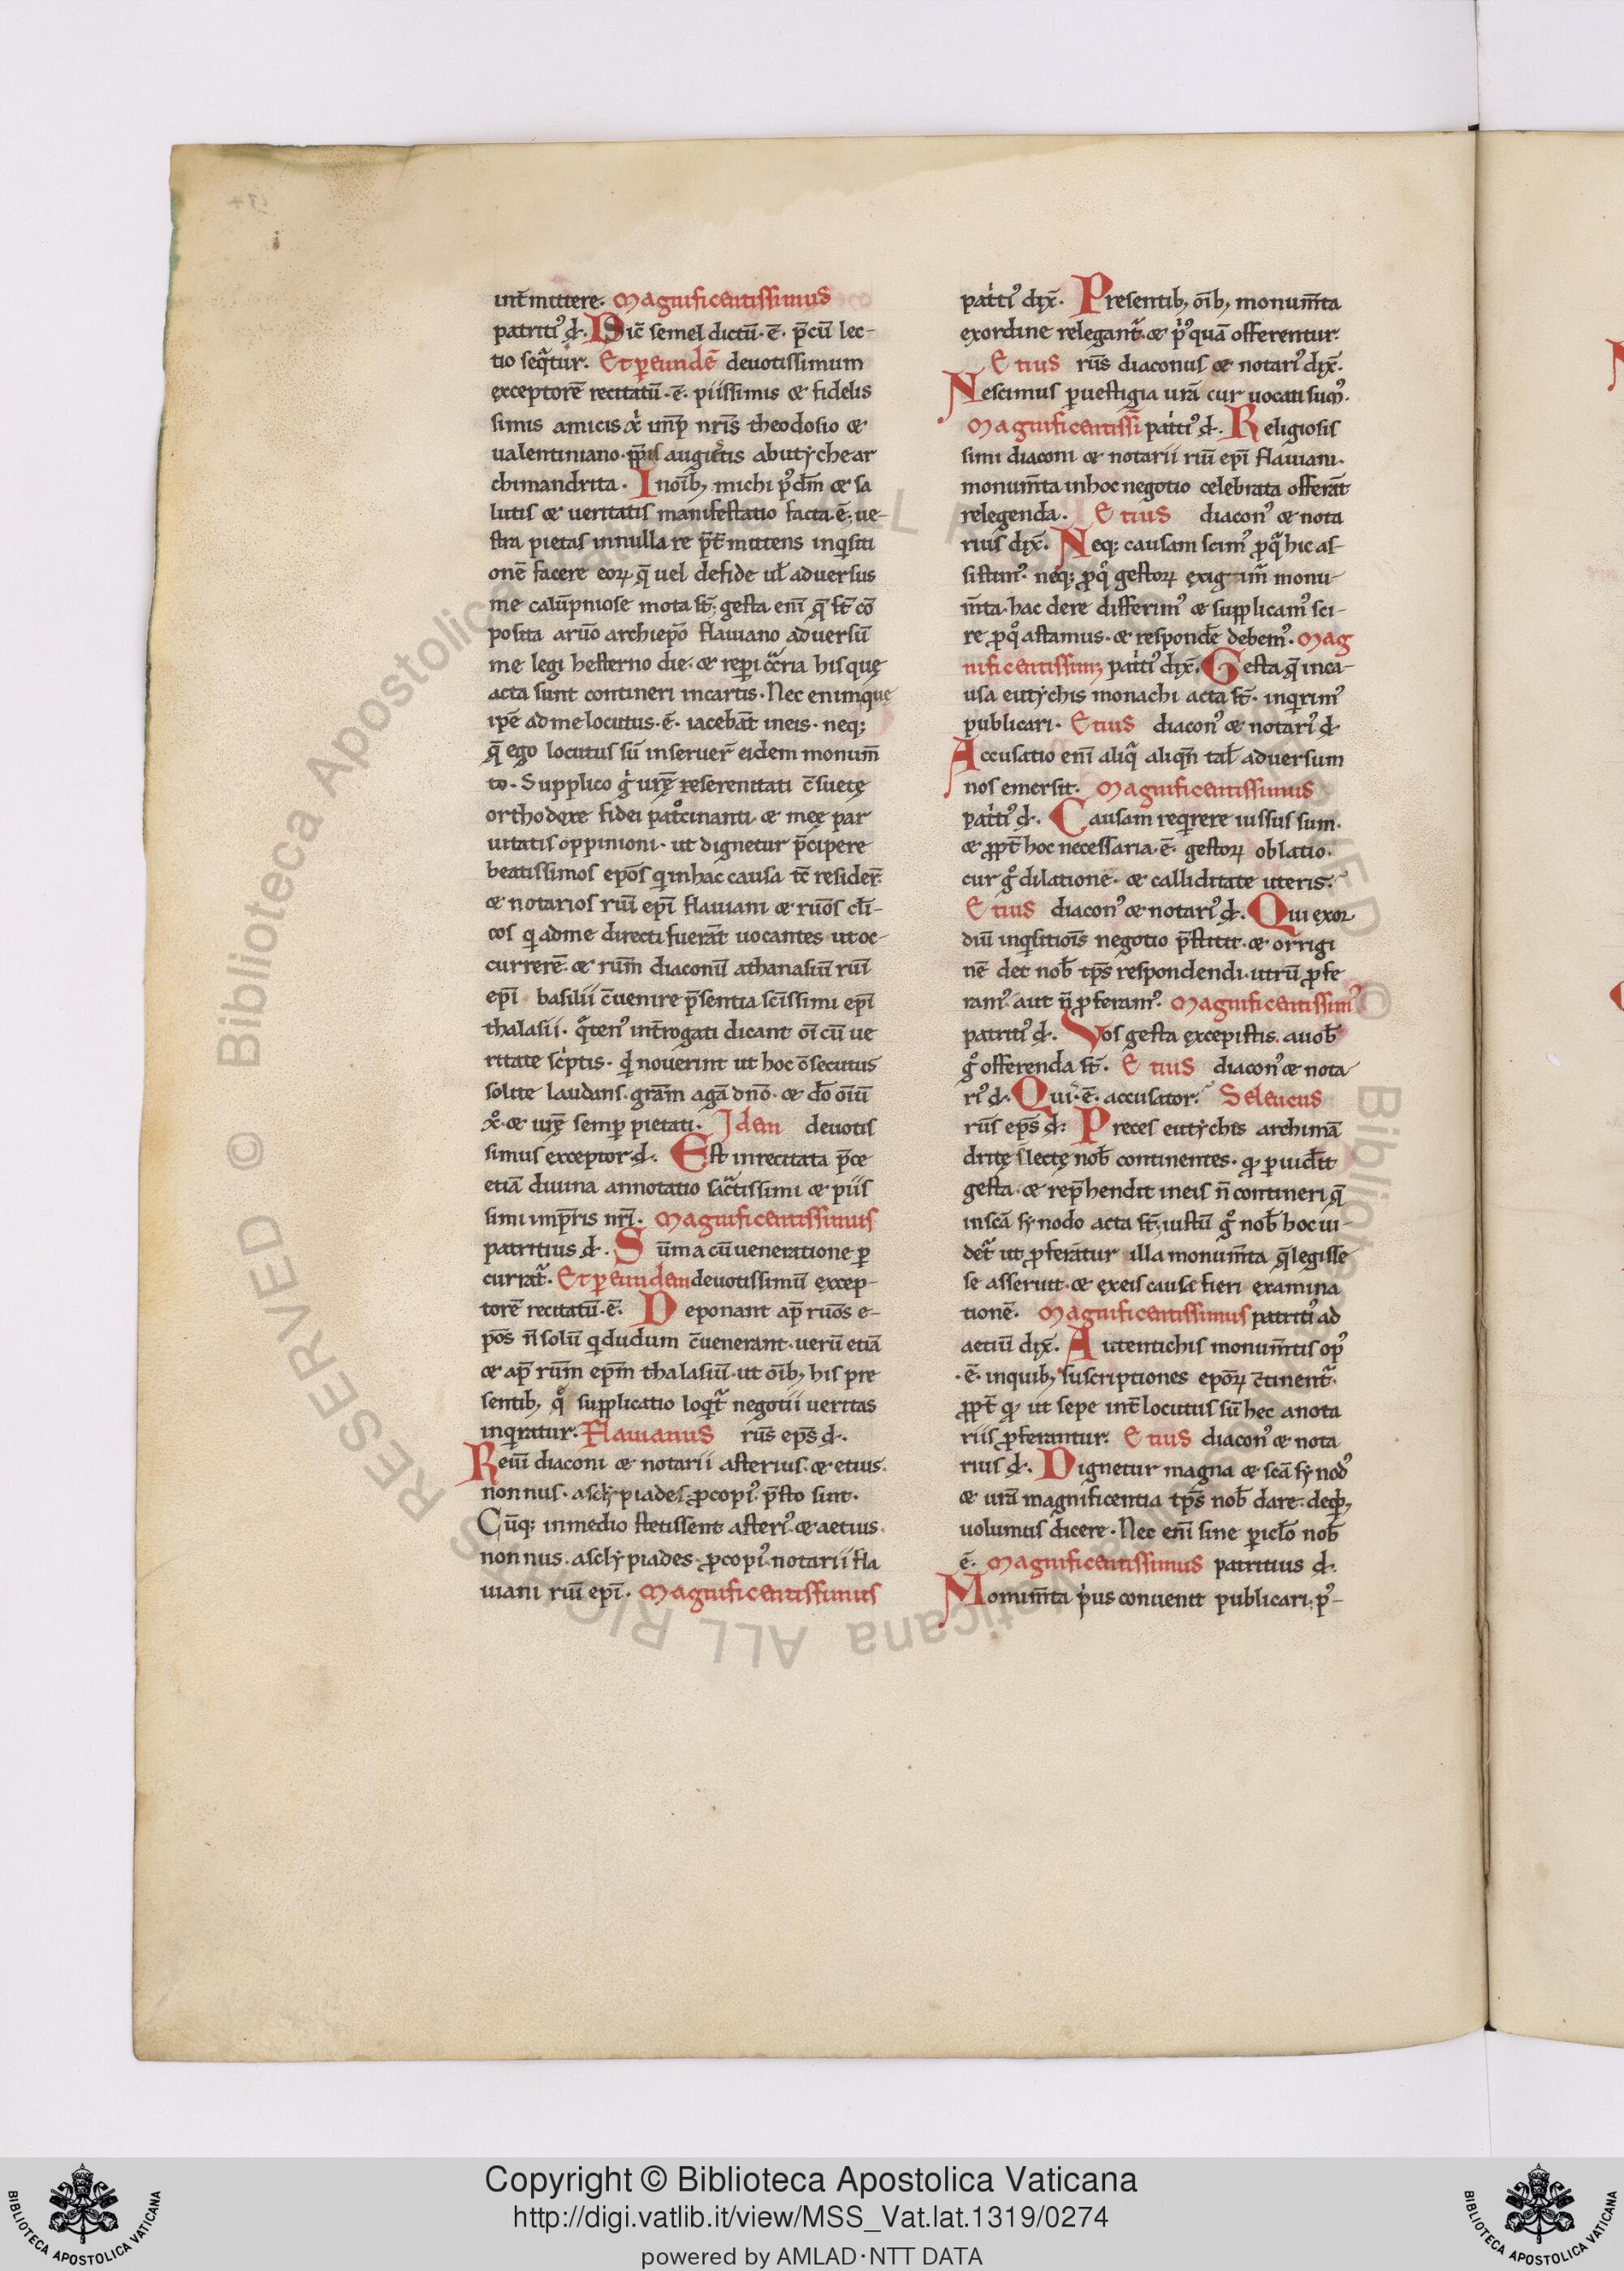 int̄mittere. Magnificentissimus
patriti᾽ đ. Sic̄ semel dictū·ē· p̄cū lec-
tio seq̄tur. Et ꝑ eundē deuotissimum
exceptorē recitatū·ē· piissimis & fidelis
simis amicis nr̄is theodosio &
ualentiniano· augustis ab utÿche ar
chimandrita· In oīb; michi & sa
lutis & ueritatis manifestatio facta·ē· ue-
stra pietas in nulla re p̄t̄mittens inqͥsiti
onē facere eoꝝ q̄ uel de fide ul̄ aduersus
me calūpniose mota st̄· gesta enī q̄ st̄ cō
posita a ruō archiepō flauiano aduersū
me legi hesterno die· & reperi his quę
acta sunt contineri in cartis· Nec enim que
ipē ad me locutus·ē· iacebāt in eis· neq;
q̄ ego locutus sū inseruer̄ eidem monum̄
to· Supplico gͥ urę̄ serenitati c̄suetę
orthodoxe fidei patͦcinanti· & meę par
uitatis oppinioni· ut dignetur p̄cipere
beatissimos epōs qͥ in hac causa tc̄ resider̄·
& notarios ruī epī flauiani & ruōs cl̄i-
cos qͥ ad me directi fuerāt uocantes ut oc-
currerē· & rum̄ diaconū athanasiū ruī
epī basilii c̄uenire p̄sentia scīssimi epī
thalasii· qͣten᾽ int̄rogati dicant oī cū ue
ritate scͥptis· qͥ nouerint ut hoc ōsecutus
solite laudans· gram̄ agā dnō· & dō oīuū
xͦ· & urę̄ semꝑ pietati· Idem deuotis
simus exceptor đ. Est in recitata p̄ce
etiā diuina annotatio sāctissimi & piis
simi imp̄ris nrī. Magnificentissimus
patritius đ. Sūma cū ueneratione ꝑ
curratᷓ. Et ꝑ eundem deuotissimū excep-
torē recitatū·ē· Deponant ap̄ ruōs e-
pōs n̄ solū qͥ dudum c̄uenerant· uerū etiā
& ap̄ rum̄ epm̄ thalasiū· ut oīb; his pre
sentib; qͦ supplicatio loqͥt̄ negotii ueritas
inqͥratur. Flauianus rūs ep̄s đ.
Reuī diaconi & notarii asterius· & etius·
nonnus· asclÿpiades· ꝓcopi᾽ p̄sto sunt·
Cūq; in medio stetissent asteri᾽ & aetius·
nonnus· asclÿpiades· ꝓcopi᾽ notarii fla
uiani ruī epī· Magnificentissimus
patͥti᾽ dix̄. Presentib; oīb; monum̄ta
ex ordine relegantᷓ· & p᾽quā offerentur·
Etius rūs diaconus & notari᾽ dix̄.
Nescimus ꝑ uestigia urā cur uocati sum᾽·
Magnificentissī patͥti᾽ đ. Religiosis
simi diaconi & notarii ruī epī flauiani·
monum̄ta in hoc negotio celebrata offerāt
relegenda. Etius diacon᾽ & nota
rius dix̄. Neq; causam scim᾽ ꝓ qͣ hic as-
sistim᾽· neq; ꝓ qͦ gestoꝝ monu-
m̄ta· hac de re differim᾽ & supplicam᾽ sci-
re ꝓ qͦ astamus· & respondē debem᾽. Mag
nificentissim; patͥti᾽ dix̄. Gesta q̄ in ca-
usa eutÿchis monachi acta st̄· inqͥrim᾽
publicari· Etius diacon᾽ & notari᾽ đ
Accusatio enī aliqͣ aliqn̄ tal̄ aduersum
nos emersit· Magnificentissimus
patͥti᾽ đ. Causam reqͥrere iussus sum·
& ꝓpt̄ hoc necessaria·ē· gestoꝝ oblatio·
cur gͦ dilatione· & calliditate uteris·
Etius diacon᾽ & notari᾽ đ. Qui exor
diū inqͥsitiōis negotio p̄stitit· & origi
nē det nob̄ tp̄s respondendi· utrū ꝓfe
ram᾽ aut n̄ ꝓferam᾽. Magnificentissim᾽
patriti᾽ đ. Vos gesta excepistis· a uob̄
gͦ offerenda st̄· Etius diacon᾽ & nota
ri᾽ đ. Qui·ē· accusator· Seleucus
rūs ep̄s đ: Preces eutÿchis archimā
dritę s̄ lectę nob̄ continentes· qꝫ ꝑuidit
gesta· & rep̄hendit in eis n̄ contineri q̄
in scā sÿnodo acta st̄· iustū gͦ nob̄ hoc ui-
detᷓ ut ꝓferātur illa monum̄ta q̄ legisse
se asserit· & ex eis causa fieri examina
tionē. Magnificentissimus patriti᾽ ad
aetiū dix̄. Autentichis monum̄tis op᾽
·ē· in quib; suscriptiones epōꝝ c̄tinentᷓ·
ꝓpt̄ qꝫ ut sepe int̄locutus sū hec a nota
riis ꝓferantur· Etius diacon᾽ & nota
rius đ. Dignetur magna & scā sÿnod᾽
& urā magnificentia tp̄s nob̄ dare· de qͥb;
uolumus dicere· Nec enī sine ꝑicl̄o nob̄
ē· Magnificentissimus patritius đ·
Monum̄ta pͥus conuenit publicari· p᾽-
Copyright © Biblioteca Apostolica Vaticana
http://digi.vatlib.it/view/MSS_Vat.lat.1319/0274
powered by AMLAD·NTT DATA
BIBLIOTECA APOSTOLICA VATICANA
BIBLIOTECA APOSTOLICA VATICANA